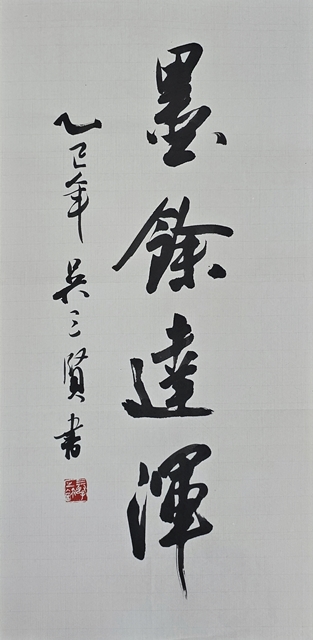 墨餘達渾
乙巳年 吴三賢書